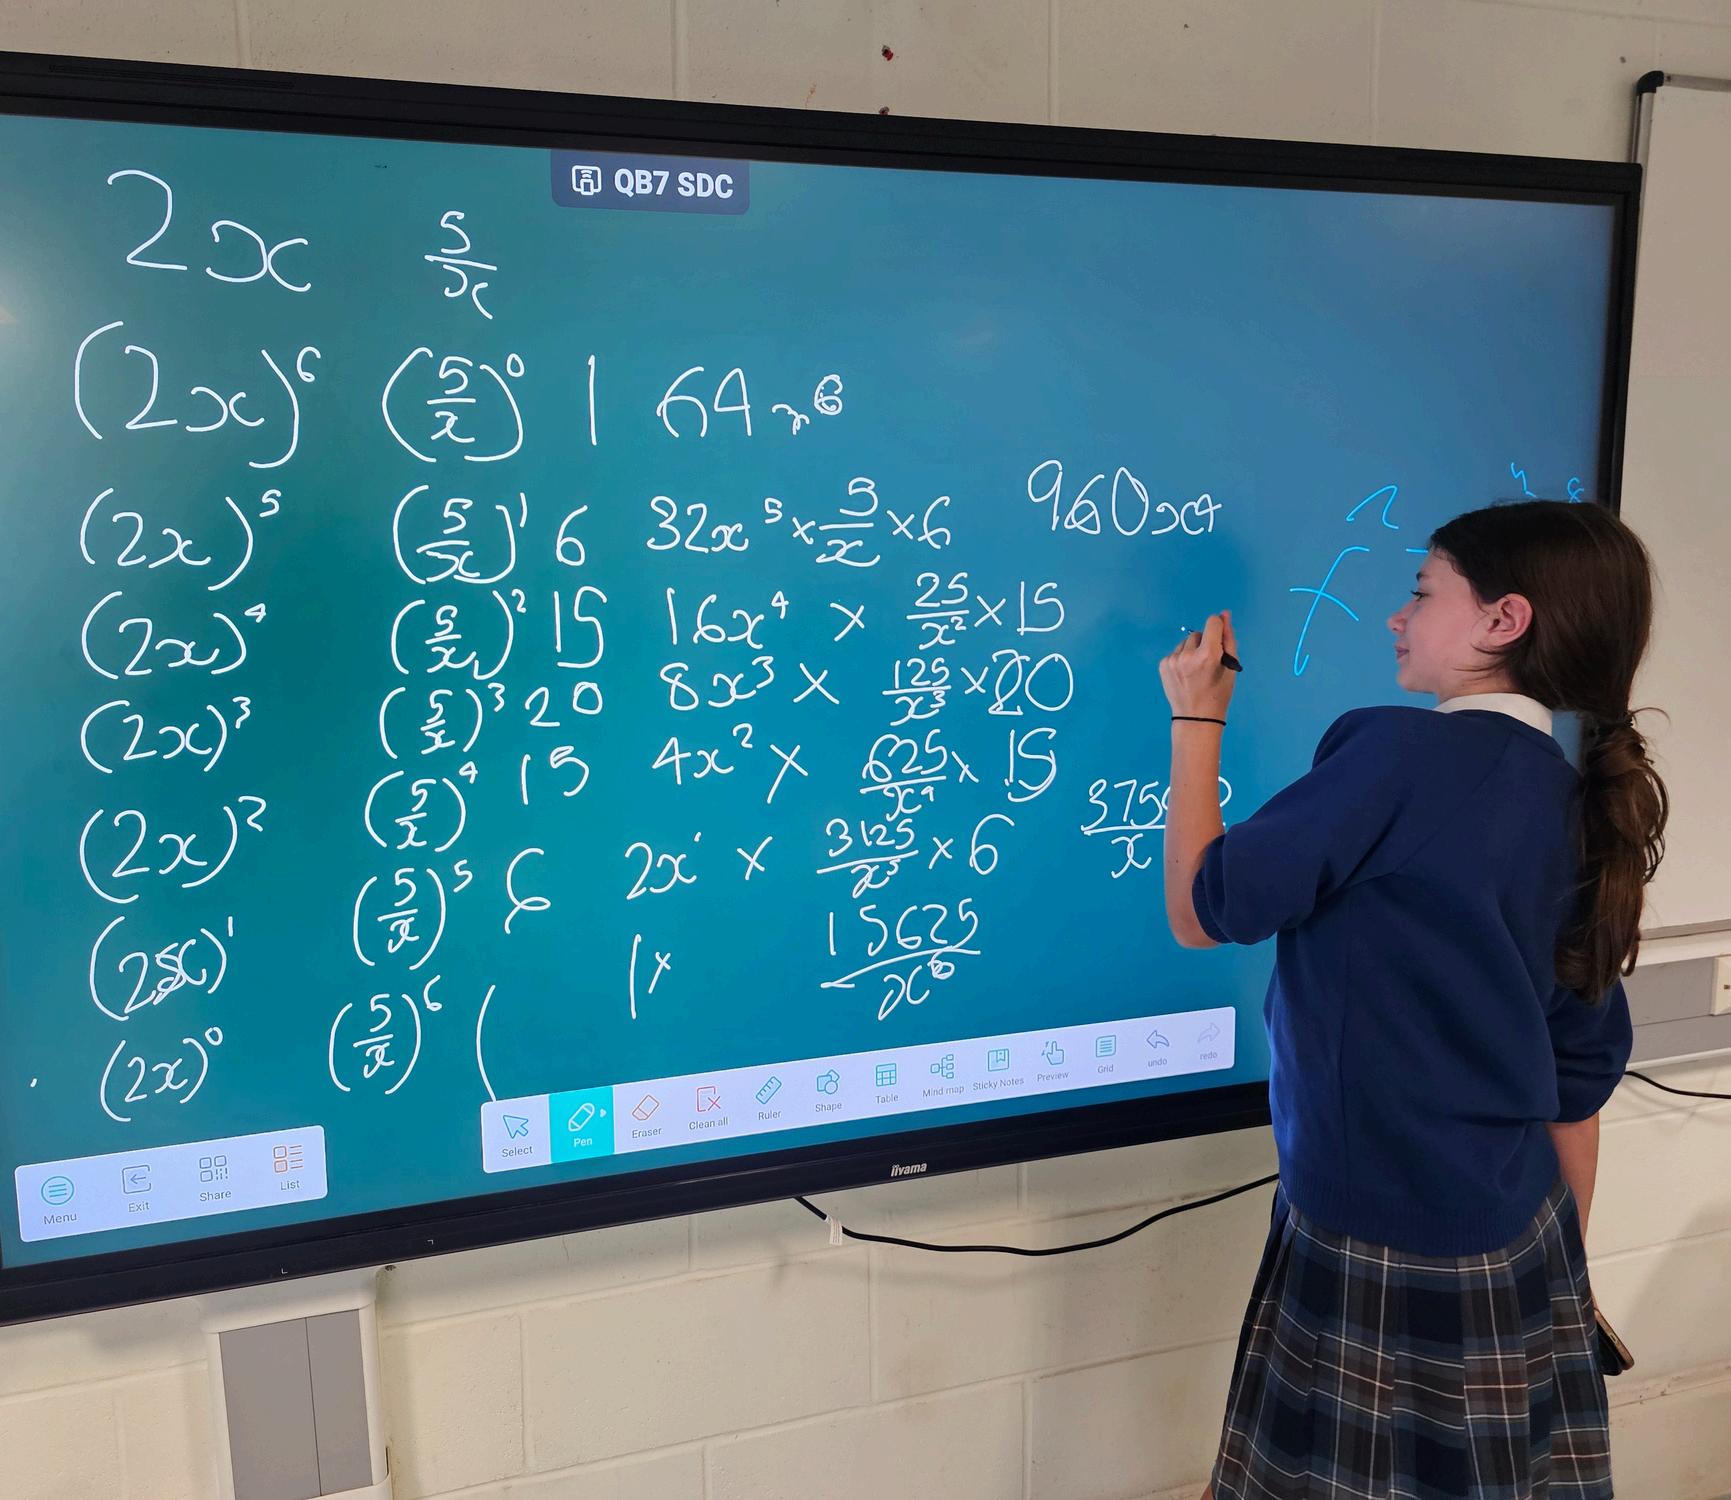 QB7 SDC
2x 5/x
(2x)^6 (5/x)^0 1 64x^6
(2x)^5 (5/x)^1 6 32x^5 × 5/x × 6 960x^4
(2x)^4 (5/x)^2 15 16x^4 × 25/x^2 × 15
(2x)^3 (5/x)^3 20 8x^3 × 125/x^3 × 20
(2x)^2 (5/x)^4 15 4x^2 × 625/x^4 × 15
(2x)^1 (5/x)^5 6 2x^1 × 3125/x^5 × 6
(2x)^0 (5/x)^6 1× 15625/x^6
Select Pen Eraser Clean all Ruler Shape Table Mind map Sticky Notes Preview Grid undo redo
Menu Exit Share List
iiyama